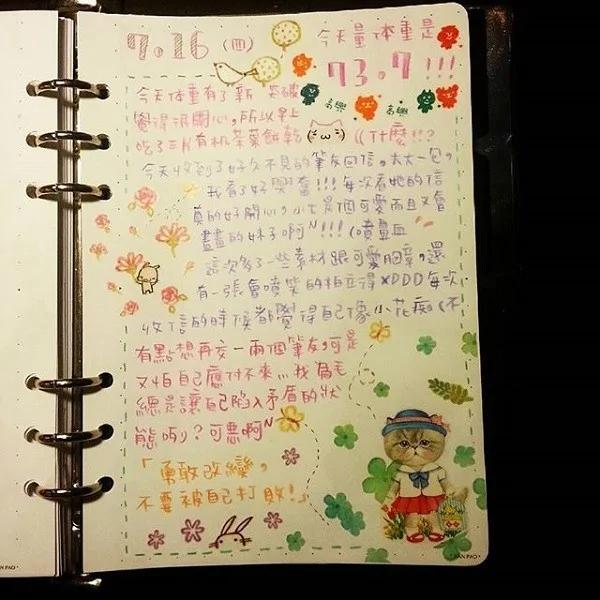 7.16 (四)
今天量体重是
73.7!!!
今天体重有了新突破
覺得很開心,所以早上
高興 高興
吃了三片有机茶葉餅乾 ((什麼!!?
今天收到了好久不見的筆友回信,大大一包,
我看了好興奮!!!每次看她的信
真的好開心,小七是個可愛而且又會
畫畫的妹子啊~!!!(噴鼻血
這次多了一些素材跟可愛胶章,還
有一張會噴笑的拍立得XDDD每次
收信的時候都覺得自己像小花痴(不
有點想再交一兩個筆友,可是
又怕自己應付不來...我為毛
總是讓自己陷入矛盾的狀
態咧?可惡啊~
「勇敢改變,
不要被自己打敗!」